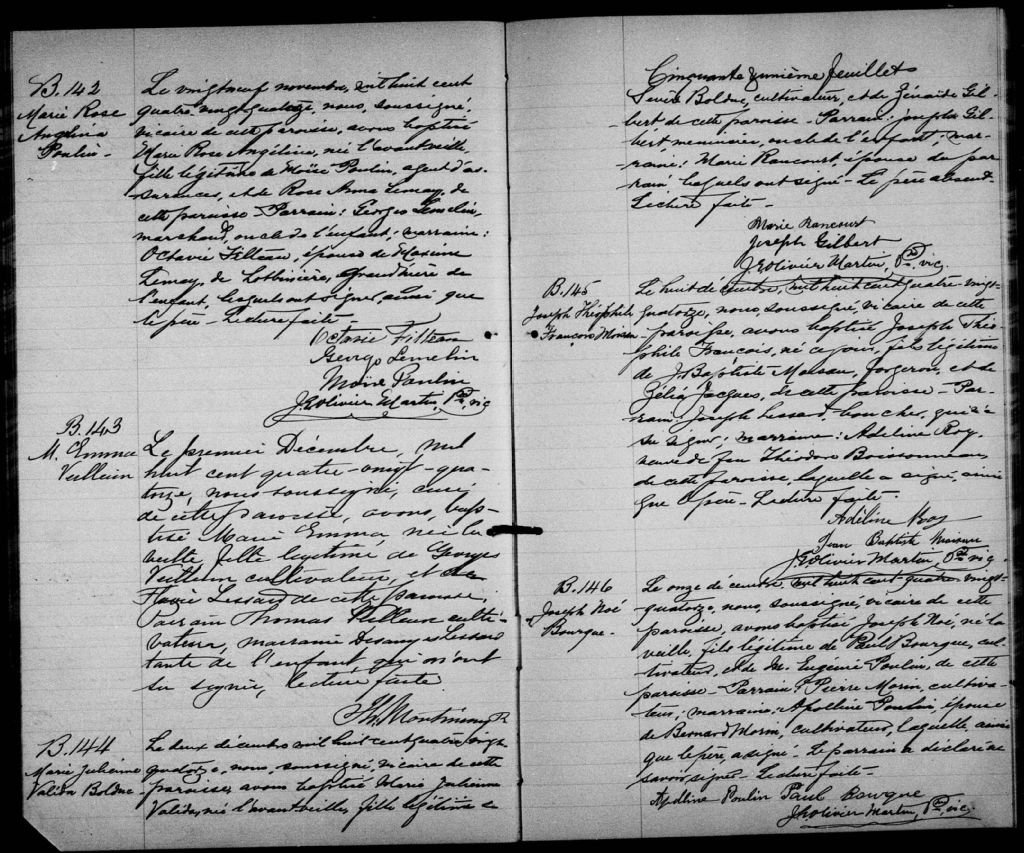 B. 142
Marie Rose
Angélina
Poulin
Le vingtneuf novembre, mil huit cent
quatre-vingt-quatorze, nous, soussigné,
vicaire de cette paroisse, avons baptisé
Marie Rose Angélina, née l'avant veille,
fille légitime de Moïse Poulin, agent d'as-
surances, et de Rose Anna Lemay, de
cette paroisse - Parrain: Georges Lemelin,
marchand, oncle de l'enfant; marraine:
Octavie Filteau, épouse de Maxime
Lemay, de Lotbinière, grand'mère de
l'enfant, lesquels ont signé, ainsi que
le père - Lecture faite -
Octavie Filteau
George Lemelin
Moïse Poulin
J.E. Olivier Martin, Ptre, vic
B. 143
M. Emma
Veilleux
Le premier Décembre, mil
huit cent quatre-vingt-qua-
torze, nous soussigné, curé
de cette paroisse, avons, bap-
tisé Marie Emma, née la
veille fille légitime de Georges
Veilleux cultivateur, et de
Flavie Lessard de cette paroisse,
Parrain Thomas Veilleux culti-
vateur, marraine Desanges Lessard
tante de l'enfant qui n'ont
su signer, lecture faite
J. Th. Montminy Ptr
B. 144
Marie Julienne
Valéda Bolduc
Le deux décembre mil huit cent quatre-vingt-
quatorze, nous, soussigné, vicaire de cette
paroisse, avons baptisé Marie Julienne
Valéda, née l'avant veille, fille légitime de
Cinquante-unième feuillet
Sévère Bolduc, cultivateur, et de Zénaïde Gil-
bert de cette paroisse - Parrain: Joseph Gil-
bert, menuisier, oncle de l'enfant; mar-
raine: Marie Rancourt, épouse du par-
rain, lesquels ont signé - Le père absent -
Lecture faite -
Marie Rancourt
Joseph Gilbert
J.E. Olivier Martin, Ptre, vic.
B. 145
Joseph Théophile
François Moisan
Le huit décembre, mil huit cent quatre-vingt-
quatorze, nous, soussigné, vicaire de cette
paroisse, avons baptisé Joseph Théo-
phile François, né ce jour, fils légitime
de J. Baptiste Moisan, forgeron, et de
Zélia Jacques, de cette paroisse - Par-
rain Joseph Lessard, boucher, qui n'a
su signer; marraine: Adeline Roy,
veuve de feu Théodore Boissonneau,
de cette paroisse, laquelle a signé, ainsi
que le père - Lecture faite -
Adéline Roy
Jean Baptiste Moisan
J.E. Olivier Martin, Ptre, vic.
B. 146
Joseph Noé
Bourque
Le onze décembre mil huit cent quatre-vingt-
quatorze, nous, soussigné, vicaire de cette
paroisse, avons baptisé Joseph Noé, né la
veille, fils légitime de Paul Bourque, cul-
tivateur, et de M. Eugénie Poulin, de cette
paroisse - Parrain: Pierre Morin, cultiva-
teur; marraine: Apolline Poulin, épouse
de Bernard Morin, cultivateur, laquelle, ainsi
que le père, a signé. Le parrain a déclaré ne
savoir signer - Lecture faite -
Apolline Poulin Paul Bourque
J.E. Olivier Martin, Ptre, vic.